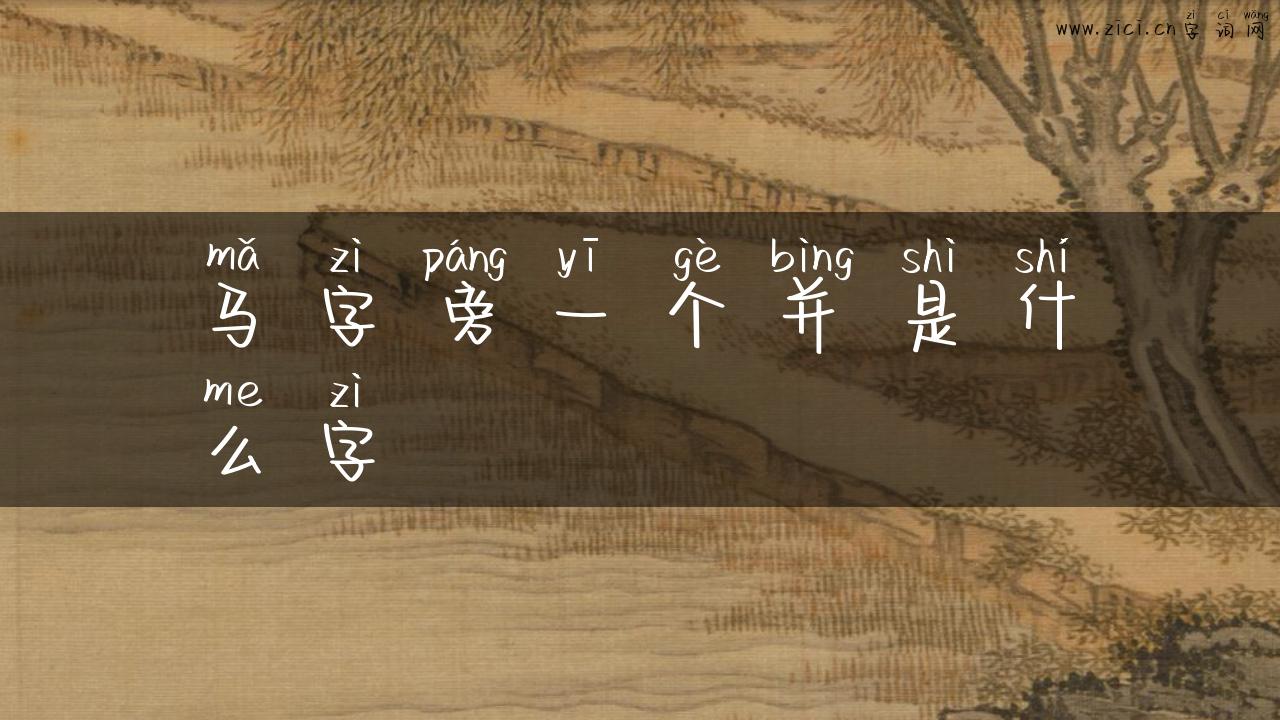 zì cí wǎng
www.zici.cn字词网
mǎ zì páng yī gè bìng shì shí
马字旁一个并是什
me zì
么字